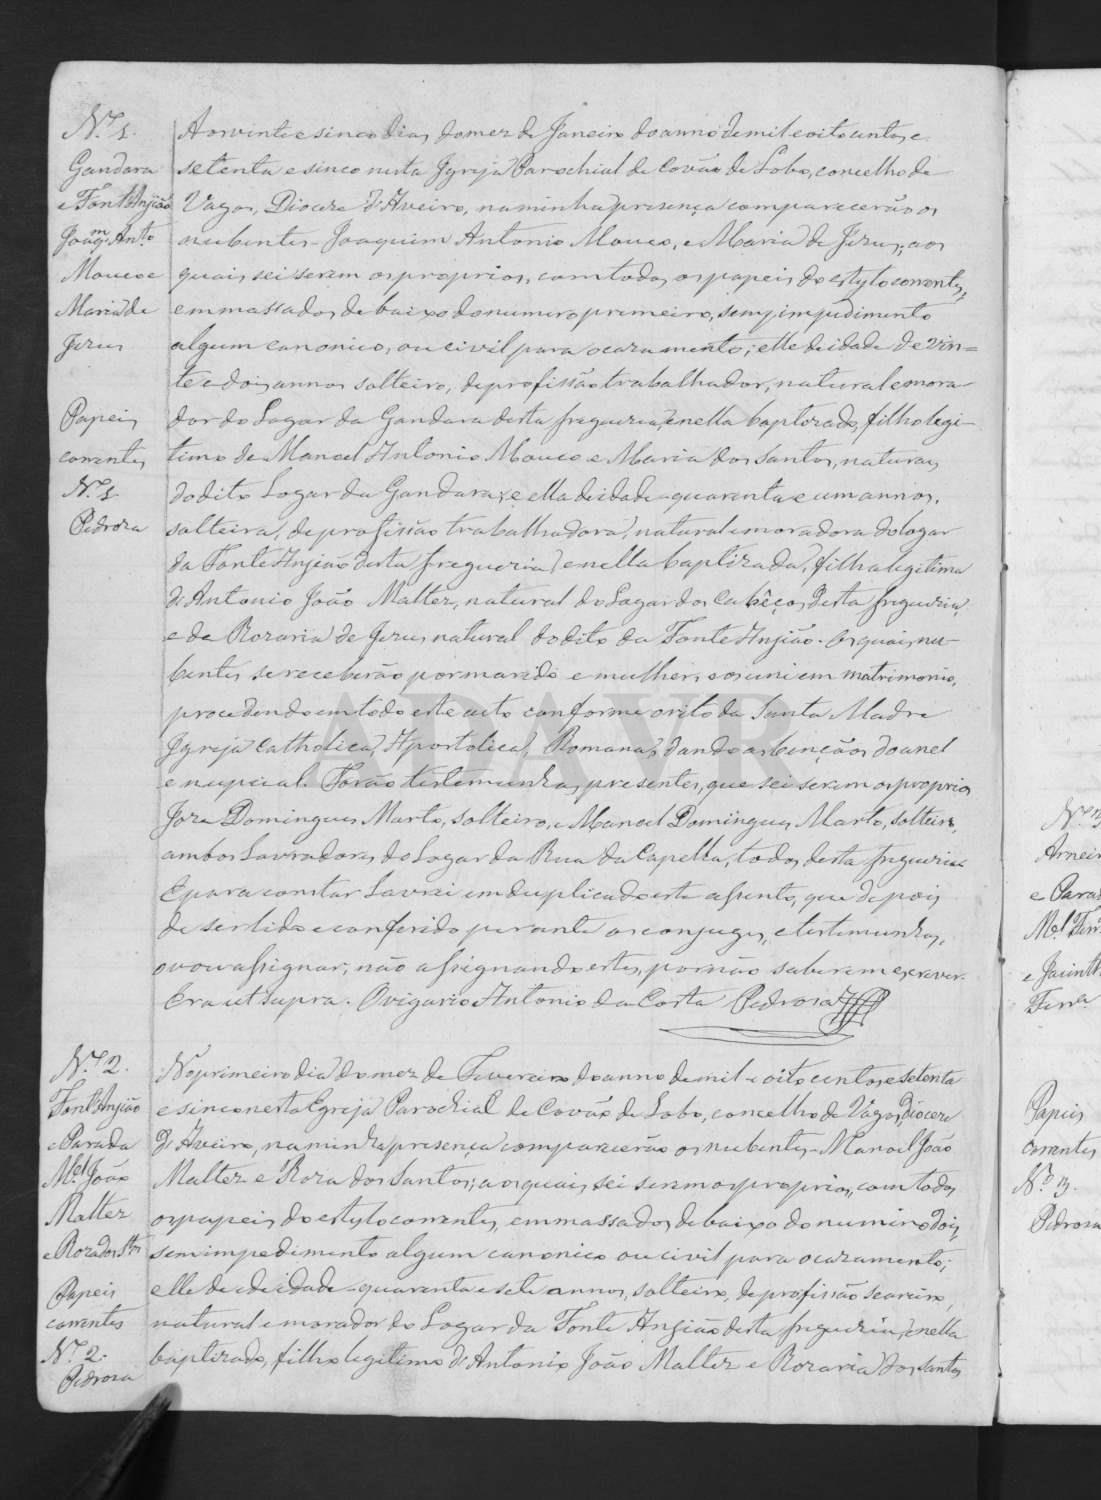 N.º 1.
Gandara
e Font'Anjião
Joaqm. Anto.
Mouco e
Maria de
Jesus
Papeis
correntes
N.º 1
Pedroza
Aos vinte e sinco dias do mez de Janeiro do anno de mil e oito centos e
setenta e sinco nesta Igreja Parochial de Covão de Lobo, concelho de
Vagos, Diocese d'Aveiro, na minha presença comparecerão os
nubentes - Joaquim Antonio Mouco, e Maria de Jesus, aos
quais sei serem os proprios, com todos os papeis do estylo correntes,
emmassados de baixo do numero primeiro, sem impedimento
algum canonico, ou civil para o cazamento; elle de idade de vin=
te e dois annos solteiro, de profissão trabalhador, natural e mora-
dor do Logar da Gandara desta freguezia, e nella baptizado, filho legi-
timo de Manoel Antonio Mouco e Maria dos Santos, naturaes
do dito Logar da Gandara; e ella de idade - quarenta e um annos,
solteira, de profissão trabalhadora, natural e moradora do logar
da Fonte Anjião desta freguezia, e nella baptizada, filha legitima
d'Antonio João Malter, natural do Logar dos Cabêços desta freguezia,
e de Rozaria de Jesus natural do dito da Fonte Anjião. Os quais nu-
bentes se receberão por marido e mulher, e os uni em matrimonio,
procedendo em todo este acto conforme o rito da Santa Madre
Igreja Catholica, Apostolica, Romana, dando as bençãos do anel
e nupcial. Forão testemunhas presentes, que sei serem os proprios
Joze Domingues Marto, solteiro, e Manoel Domingues Marto, solteiro,
ambos Lavradores do Logar da Rua da Capella, todos desta freguezia
E para constar Lavrei em duplicado este assento, que depois
de ser lido e conferido perante os conjuges, e testemunhas,
o vou assignar, não assignando estes, por não saberem escrever.
Era ut supra. O vigario Antonio da Costa Pedroza
N.º 2.
Font'Anjião
e Parada
Mel. João
Malter
e Roza dos Stos
Papeis
correntes
N.º 2.
Pedroza
No primeiro dia do mez de Fevereiro do anno de mil e oito centos e setenta
e sinco nesta Egreja Parochial de Covão de Lobo, concelho de Vagos, Diocese
d'Aveiro, na minha presença comparecerão os nubentes - Manoel João
Malter e Roza dos Santos; aos quais sei serem os proprios, com todos
os papeis do estylo correntes, emmassados de baixo do numero dois,
sem impedimento algum canonico ou civil para o cazamento;
elle de idade - quarenta e sete annos, solteiro, de profissão seareiro,
natural e morador do Logar da Fonte Anjião desta freguezia, e nella
baptizado, filho legitimo d'Antonio João Malter e Rozaria dos Santos
ADAVR
N.º 3
e Parad
Papeis
correntes
N.º 3.
Pedroza